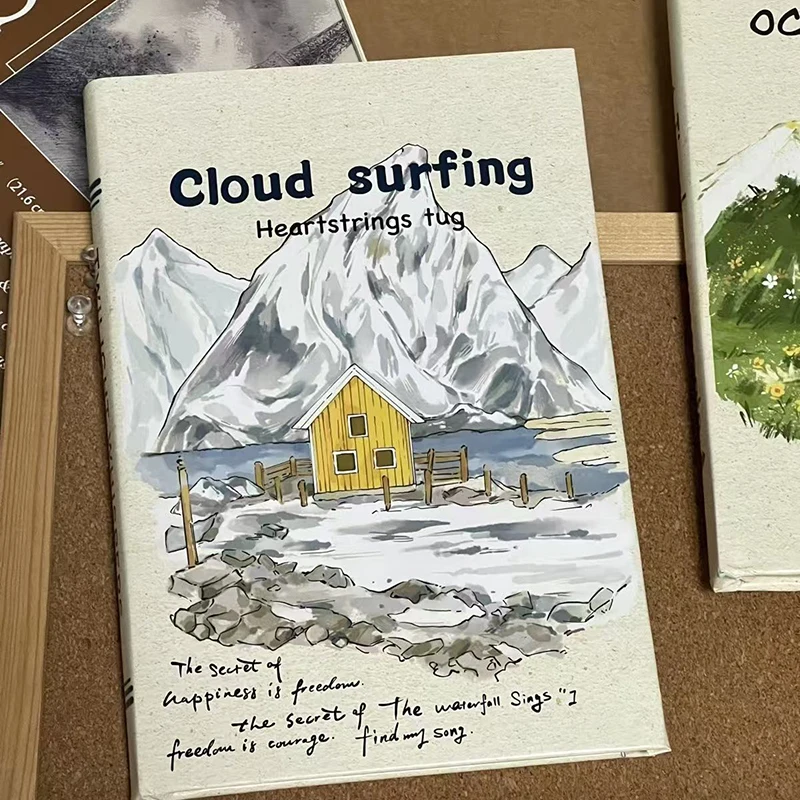 Cloud surfing
Heartstrings tug
The secret of
happiness is freedom.
the secret of The waterfall Sings "I
freedom is courage. find my song.
OC
(21.6 c